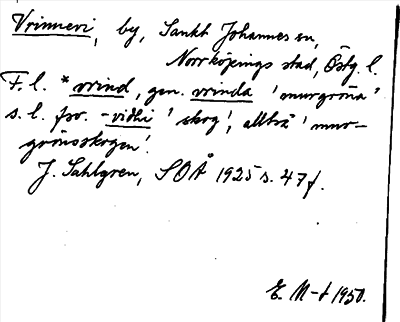 Vrinnevi, by, Sankt Johannes sn,
Norrköpings stad, Östg. l.
F. l. *vrind, gen. vrinda 'murgröna'
s. l. fsv. -vidhi 'skog', alltså 'mur-
grönsskogen'.
J. Sahlgren, SOÅ 1925 s. 47 f.
E. M-t 1950.